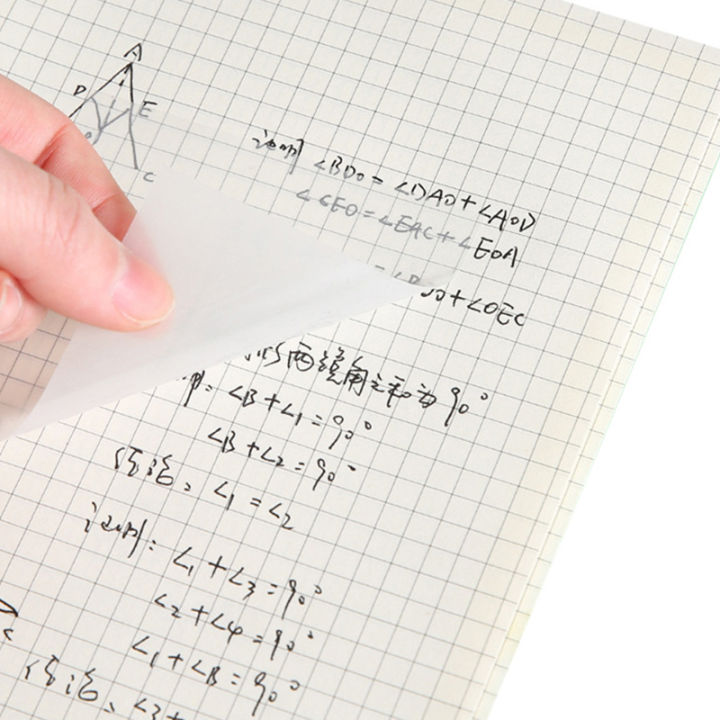 A
D
E
C
证明 ∠BDO = ∠DAO + ∠AOD
∠CEO = ∠EAC + ∠EOA
+ ∠OEC
两锐角之和为 90°
∠B + ∠1 = 90°
∠B + ∠2 = 90°
结论、∠1 = ∠2
证明: ∠1 + ∠3 = 90°
∠2 + ∠4 = 90°
∠1 + ∠B = 90°
结论、∠3 +